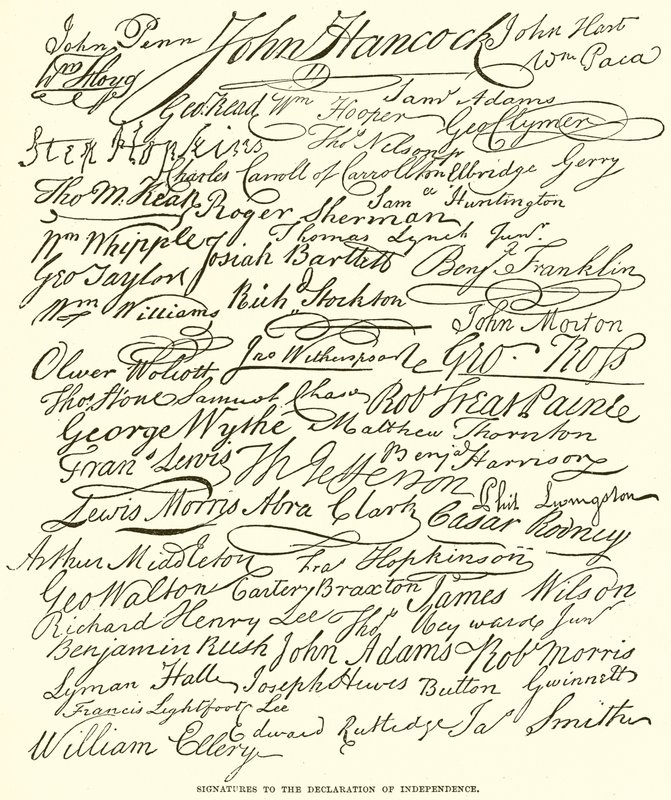 John Penn John Hancock John Hart
Wm Floyd Wm Paca
Geo. Read Wm Hooper Saml Adams
Geo Clymer
Step Hopkins Thos Nelson jr
Charles Carroll of Carrollton Elbridge Gerry
Tho M. Kean Roger Sherman Saml Huntington
Wm Whipple Thomas Lynch Junr.
Josiah Bartlett Benj Franklin
Geo Taylor
Wm Williams Richd Stockton John Morton
Oliver Wolcott Jno Witherspoon Geo. Ross
Thos. Stone Samuel Chase Robt Treat Paine
George Wythe Matthew Thornton
Frans Lewis Th Jefferson Benja Harrison
Lewis Morris Abra Clark Phil. Livingston
Cæsar Rodney
Arthur Middleton Fras Hopkinson
Geo Walton Carter Braxton James Wilson
Richard Henry Lee Thos Heyward Junr
Benjamin Rush John Adams Robt Morris
Lyman Hall Joseph Hewes Button Gwinnett
Francis Lightfoot Lee
William Ellery Edward Rutledge Jas Smith
SIGNATURES TO THE DECLARATION OF INDEPENDENCE.